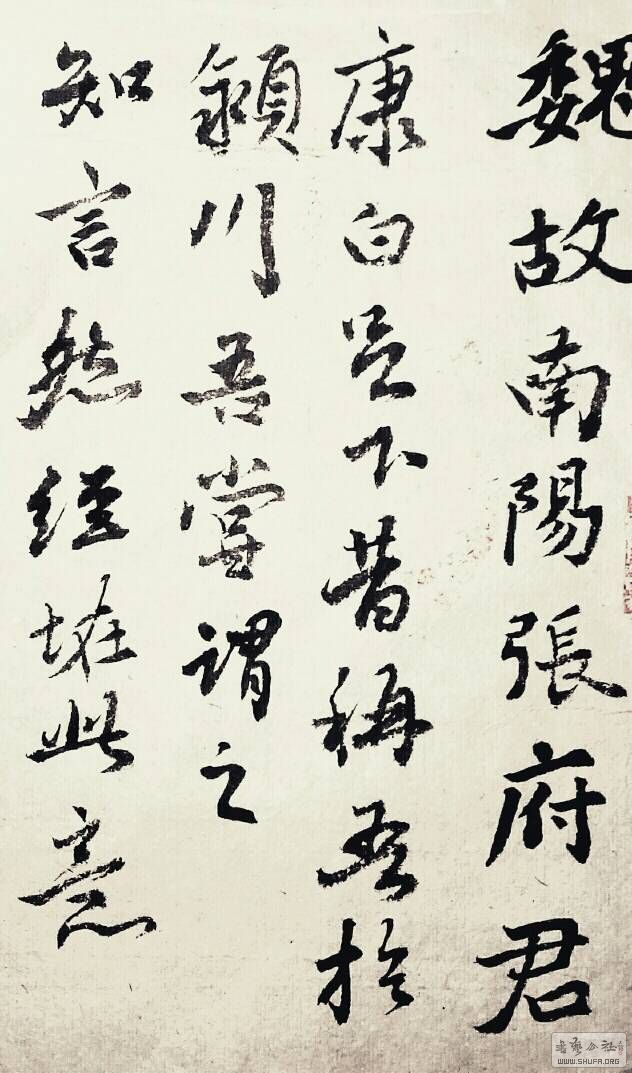 魏故南陽張府君
康白足下昔稱吾於
潁川吾嘗謂之
知言然經恠此意
WWW.SHUFA.ORG